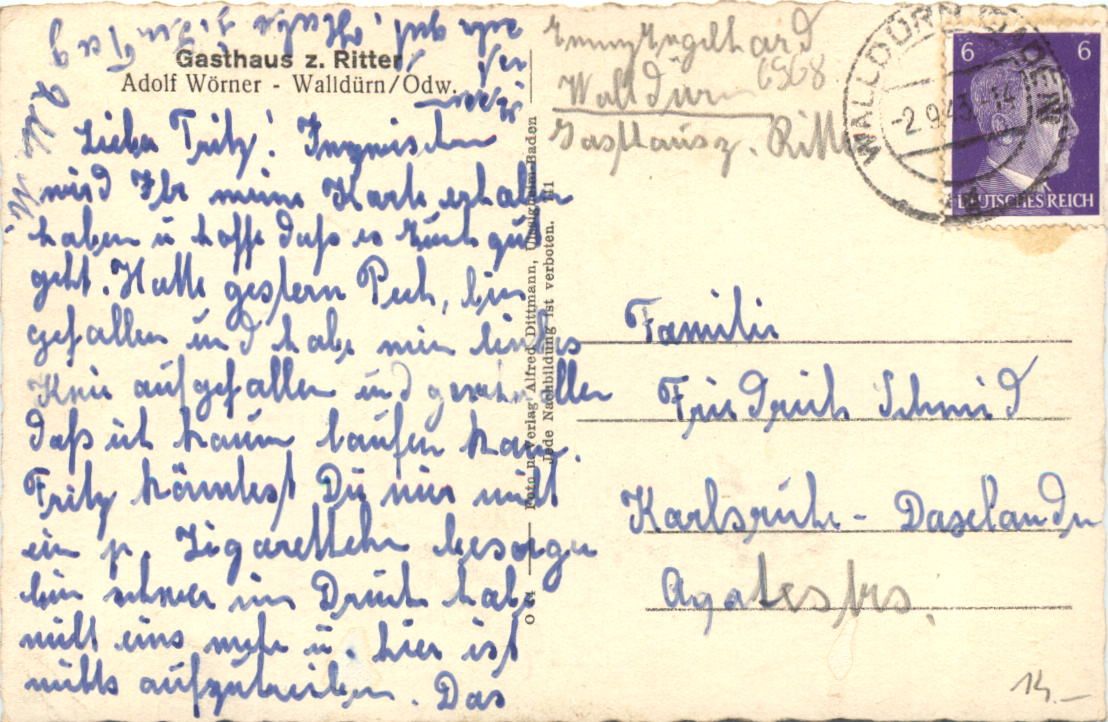 Gasthaus z. Ritter
Adolf Wörner - Walldürn/Odw.
Lieber Fritz! Inzwischen
wird Ihr meine Karte erhalten
haben u hoffe daß es Euch gut
geht. Hatte gestern Pech, bin
gefallen und habe mein linkes
Knie aufgefallen und
daß ich kaum laufen kann.
Fritz könntest Du mir nicht
ein p. Zigaretten besorgen
bin schwer im Druck habe
nicht eins mehr u. hier ist
nichts aufzutreiben. Das
Foto u. Verlag Alfred Dittmann, Baden
Jede Nachbildung ist verboten.
Emmy Engelhard
Walldürn 6968
Gasthaus z. Ritter
WALLDÜRN (BADEN)
-2.9.43.-14
6 6
DEUTSCHES REICH
Familie
Friedrich Schmid
Karlsruhe - Daxlanden
14.-